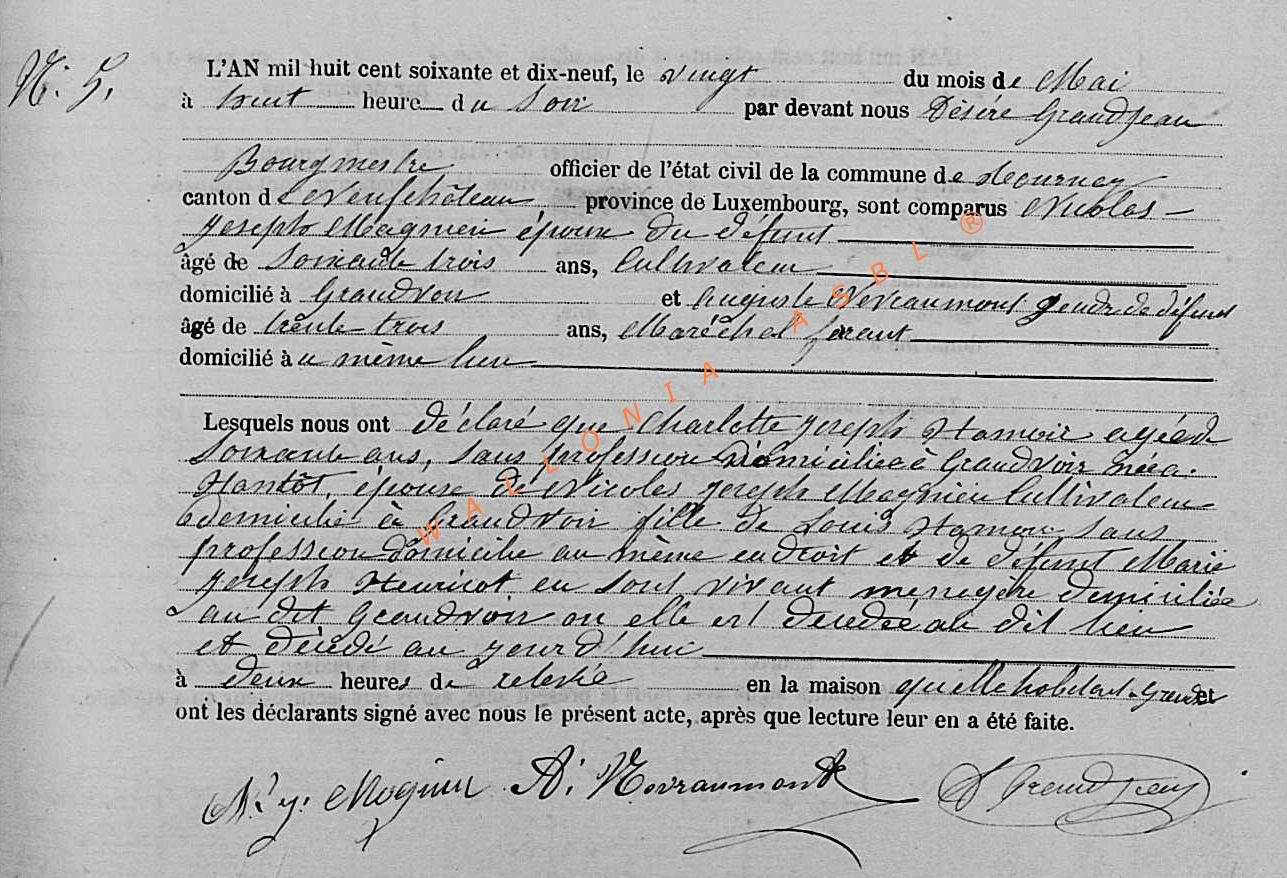 N: 5.
L'AN mil huit cent soixante et dix-neuf, le vingt du mois de Mai
à huit heure du Soir par devant nous Désiré Grandjean
Bourgmestre officier de l'état civil de la commune de Tournay
canton de Neufchâteau province de Luxembourg, sont comparus Nicolas
Joseph Magnien époux du défunt
âgé de Soixante trois ans, Cultivateur
domicilié à Grandvoir et Auguste Nevraumont gendre de défunt
âgé de trente trois ans, Maréchal ferant
domicilié à u même lieu
Lesquels nous ont déclaré que Charlotte Joseph Hamoir agée de
Soixante ans, sans profession domiciliée à Grandvoir née à
Nantôt, épouse de Nicolas Joseph Magnien Cultivateur
domicilié à Grandvoir fille de Louis Hamoir sans
profession domicilie au même endroit et de défunt Marie
Joseph Henricot en sont vivant menagère domiciliée
au dit Grandvoir ou elle est decedée au dit lieu
et décédé au jourd'hui
à deux heures de relevée en la maison qu'elle habitait a Grand et
ont les déclarants signé avec nous le présent acte, après que lecture leur en a été faite.
N. J. Magnien A. Nevraumont D Grandjean
WALLONIA ASBL ®